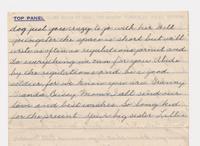 TOP PANEL
dog just as crazy to go with her. Well
going for the space is short but will
write as often as regulations permit and
do everything we can for you. Abide
by the regulations and be a good
soldier, for we know you are. Granny
Mom & all send our
love and best wishes. So long kid
for the present. Your big sister